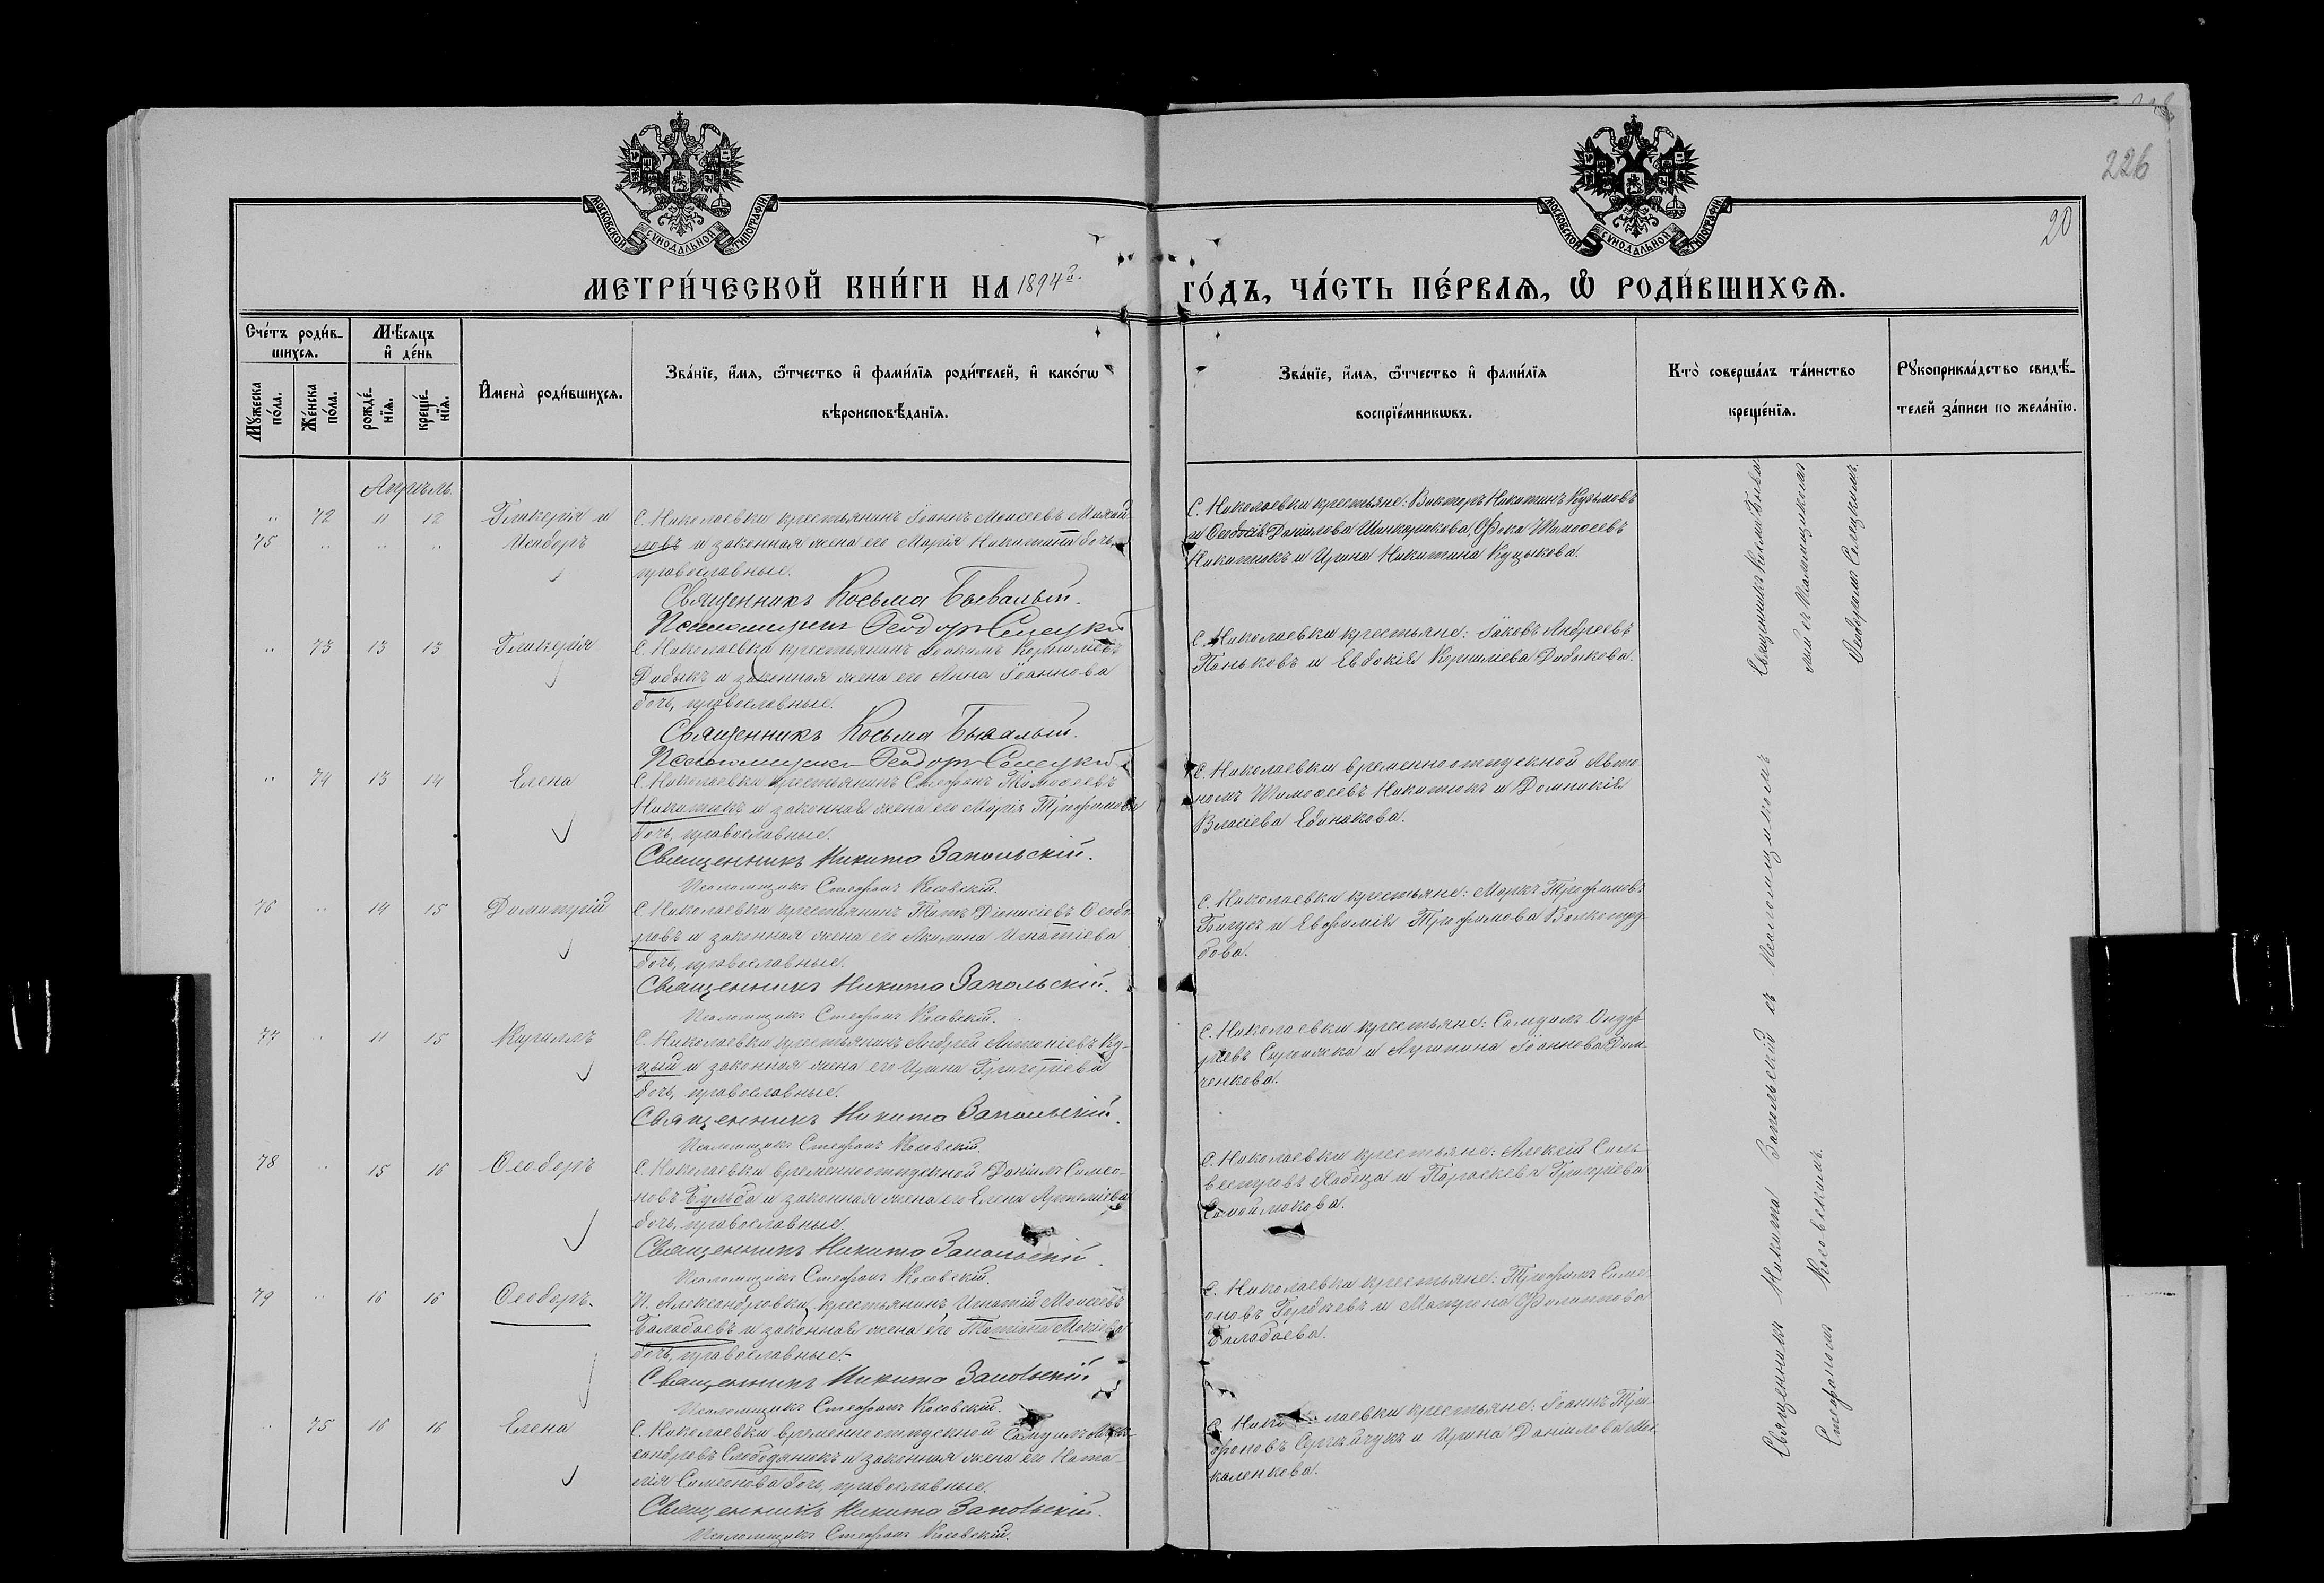 226
20
МОСКОВСКОЙ СѴНОДАЛЬНОЙ ТИПОГРАФІИ
МОСКОВСКОЙ СѴНОДАЛЬНОЙ ТИПОГРАФІИ
МЕТРИ́ЧЕСКОЙ КНИ́ГИ НА 1894й
ГО́ДЪ, ЧА́СТЬ ПЕ́РВАѦ, Ѡ РОДИ́ВШИХСѦ.
Сче́тъ роди́вшихсѧ.
Мꙋ́жеска по́ла.
Же́нска по́ла.
Мѣ́сѧцъ и҆ де́нь
рожде́нїѧ.
креще́нїѧ.
И҆мена̀ роди́вшихсѧ.
Зва́нїе, и҆́мѧ, ѻ҆́тчество и҆ фами́лїѧ роди́телей, и҆ како́гѡ
вѣроисповѣ́данїѧ.
Зва́нїе, и҆́мѧ, ѻ҆́тчество и҆ фами́лїѧ
воспрїе́мникѡвъ.
Кто̀ соверша́лъ та́инство
креще́нїѧ.
Рꙋкоприкла́дство свидѣ́-
телей за́писи по жела́нїю.
Апрѣль.
„ 72 11 12 Гликерія и
75 „ „ „ Исидоръ
С. Николаевки крестьянинъ Іоаннъ Моисеевъ Михай-
ловъ и законная жена его Марія Никитина дочь,
православные.
Священникъ Косьма Бывалый.
Псаломщикъ Ѳеодоръ Селецкій
С. Николаевки крестьяне: Викторъ Никитинъ Кузьмовъ
и Ѳеодосія Даніилова Шинкарикова, Ѳока Тимоѳеевъ
Никитюкъ и Ирина Никитина Куцыкова.
„ 73 13 13 Гликерія
С. Николаевки крестьянинъ Іоакимъ Корниліевъ
Дидыкъ и законная жена его Анна Іоаннова
дочь, православные.
Священникъ Косьма Бывалый.
Псаломщикъ Ѳеодоръ Селецкій
С. Николаевки крестьяне: Іаковъ Андреевъ
Паньковъ и Евдокія Корнилієва Дидыкова.
„ 74 13 14 Елена
С. Николаевки крестьянинъ Стефанъ Тимоѳеевъ
Никитюкъ и законная жена его Марія Трофимова
дочь, православные.
Священникъ Никита Запольскій.
Псаломщикъ Стефанъ Косовскій.
С. Николаевки временноотпускной Авто-
номъ Тимоѳеевъ Никитюкъ и Домникія
Власіева Единакова.
76 „ 14 15 Димитрій
С. Николаевки крестьянинъ Титъ Діонисіевъ Ѳеодо-
ровъ и законная жена его Акилина Игнатіева
дочь, православные.
Священникъ Никита Запольскій.
Псаломщикъ Стефанъ Косовскій.
С. Николаевки крестьяне: Маркъ Трофимовъ
и Евфимія Трофимова Волкотру-
бова.
77 „ 11 15 Кириллъ
С. Николаевки крестьянинъ Андрей Антоніевъ Ку-
цый и законная жена его Ирина Григоріева
дочь, православные.
Священникъ Никита Запольскій.
Псаломщикъ Стефанъ Косовскій.
С. Николаевки крестьяне: Самуилъ Онуф-
ріевъ и Агрипина Іоаннова Дим-
ченкова.
78 „ 15 16 Ѳеодоръ
С. Николаевки временноотпускной Даніилъ Симео-
новъ Бульба и законная жена его Елена Артеміева
дочь, православные.
Священникъ Никита Запольскій.
Псаломщикъ Стефанъ Косовскій.
С. Николаевки крестьяне: Алексій Силь-
вестровъ и Параскева Григоріева
Самойлюкова.
79 „ 16 16 Ѳеодоръ.
П. Александровки крестьянинъ Игнатій Моисеевъ
Балабаевъ и законная жена его Татіана Мокіева
дочь, православные.
Священникъ Никита Запольскій
Псаломщикъ Стефанъ Косовскій.
С. Николаевки крестьяне: Трофимъ Симе-
оновъ Горбачевъ и Матрона Филиппова
Балабаева.
„ 75 16 16 Елена
С. Николаевки временноотпускной Самуилъ Алек-
сандровъ Слободяникъ и законная жена его Ната-
лія Симеонова дочь, православные.
Священникъ Никита Запольскій.
Псаломщикъ Стефанъ Косовскій.
С. Николаевки крестьяне: Іоаннъ Три-
фоновъ Сергейчукъ и Ирина Даніилова Мос-
каленкова.
Священникъ Косьма Быва-
лый съ Псаломщикомъ
Ѳеодоромъ Селецкимъ.
Священникъ Никита Запольскій съ Псаломщикомъ
Стефаномъ Косовскимъ.